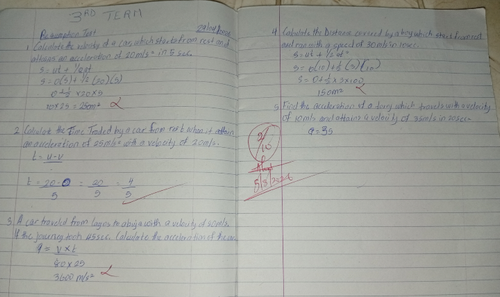 3RD TERM
Resumption Test
1. Calculate the velocity of a car which started from rest and
attains an acceleration of 20m/s² in 5 sec
S = ut + ½at
S = 0(5) + ½ (20)(5)
0 + ½ × 20 × 5
10 × 25 = 25m²
2. Calculate the Time Traded by a car from rest when it attain
an acceleration of 25m/s² with a velocity of 20m/s.
t = u - v
t = 20 - 0 = 20 = 4
5 5 5
3. A car traveled from Lagos to abuja with a velocity of
If the journey took Calculate the acceleration of the
a = v × t
3600 m/s²
4. Calculate the Distance covered by a boy which started from rest
and ran with a speed of 30m/s in 10sec.
S = ut + ½at²
S = 0(10) + ½ (30)(10)
S = 0 + ½ × 3 × 100
150m²
5. Find the acceleration of a boy which travels with a velocity
of 10m/s and attains a velocity of
a = 3s
2/10